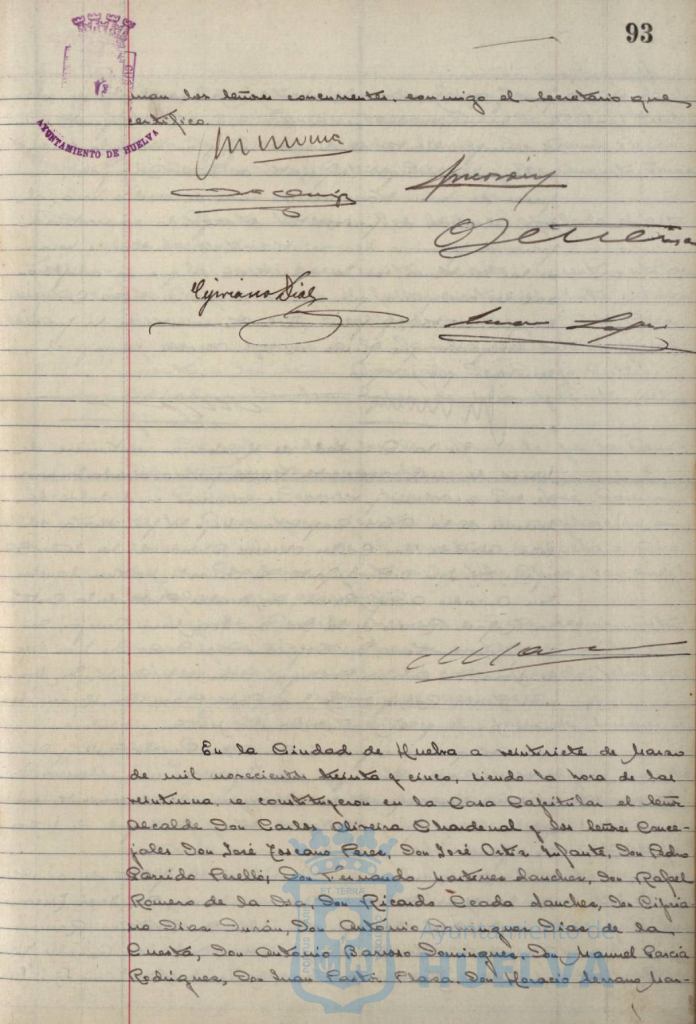 93
man los señores concurrentes, conmigo el Secretario que
certifico.
AYUNTAMIENTO DE HUELVA
Cipriano Diaz
En la Ciudad de Huelva a veintisiete de Marzo
de mil novecientos treinta y cinco, siendo la hora de las
veintiuna, se constituyeron en la Casa Capitular el señor
Alcalde Don Carlos Oliveira Chardenal y los señores Conce-
jales Don José Toscano Perez, Don José Ortiz Infante, Don Pedro
Garrido Perelló, Don Fernando Martinez Sanchez, Don Rafael
Romero de la Osa, Don Ricardo Terada Sanchez, Don Cipria-
no Diaz Durán, Don Antonio Dominguez Diaz de la
Cuesta, Don Antonio Barroso Dominguez, Don Manuel Garcia
Rodriguez, Don Juan Pastor Plaza, Don Horacio Serrano Mar-
Ayuntamiento de
HUELVA